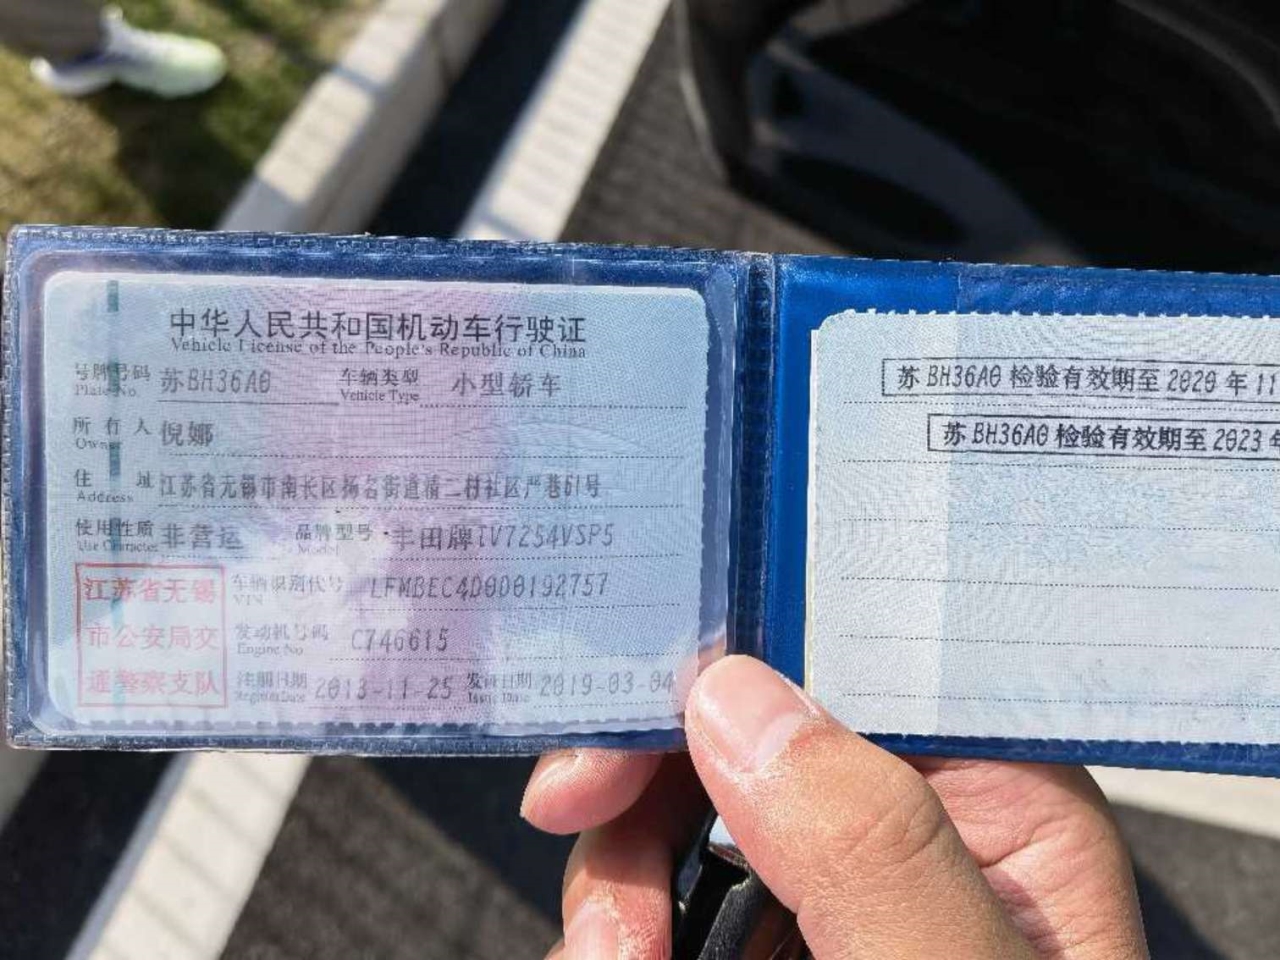 中华人民共和国机动车行驶证
Vehicle License of the People's Republic of China
号牌号码 苏BH36A0 车辆类型 小型轿车
Plate No. Vehicle Type
所有人 倪娜
Owner
住址 江苏省无锡市南长区扬名街道精二村社区严巷61号
Address
使用性质 非营运 品牌型号 丰田牌TV7254VSP5
Use Character Model
车辆识别代号 LFMBEC4D0D0192757
VIN
发动机号码 C746615
Engine No.
注册日期 2013-11-25 发证日期 2019-03-04
Register Date Issue Date
江苏省无锡
市公安局交
通警察支队
苏BH36A0 检验有效期至 2020 年 11
苏BH36A0 检验有效期至 2023 年